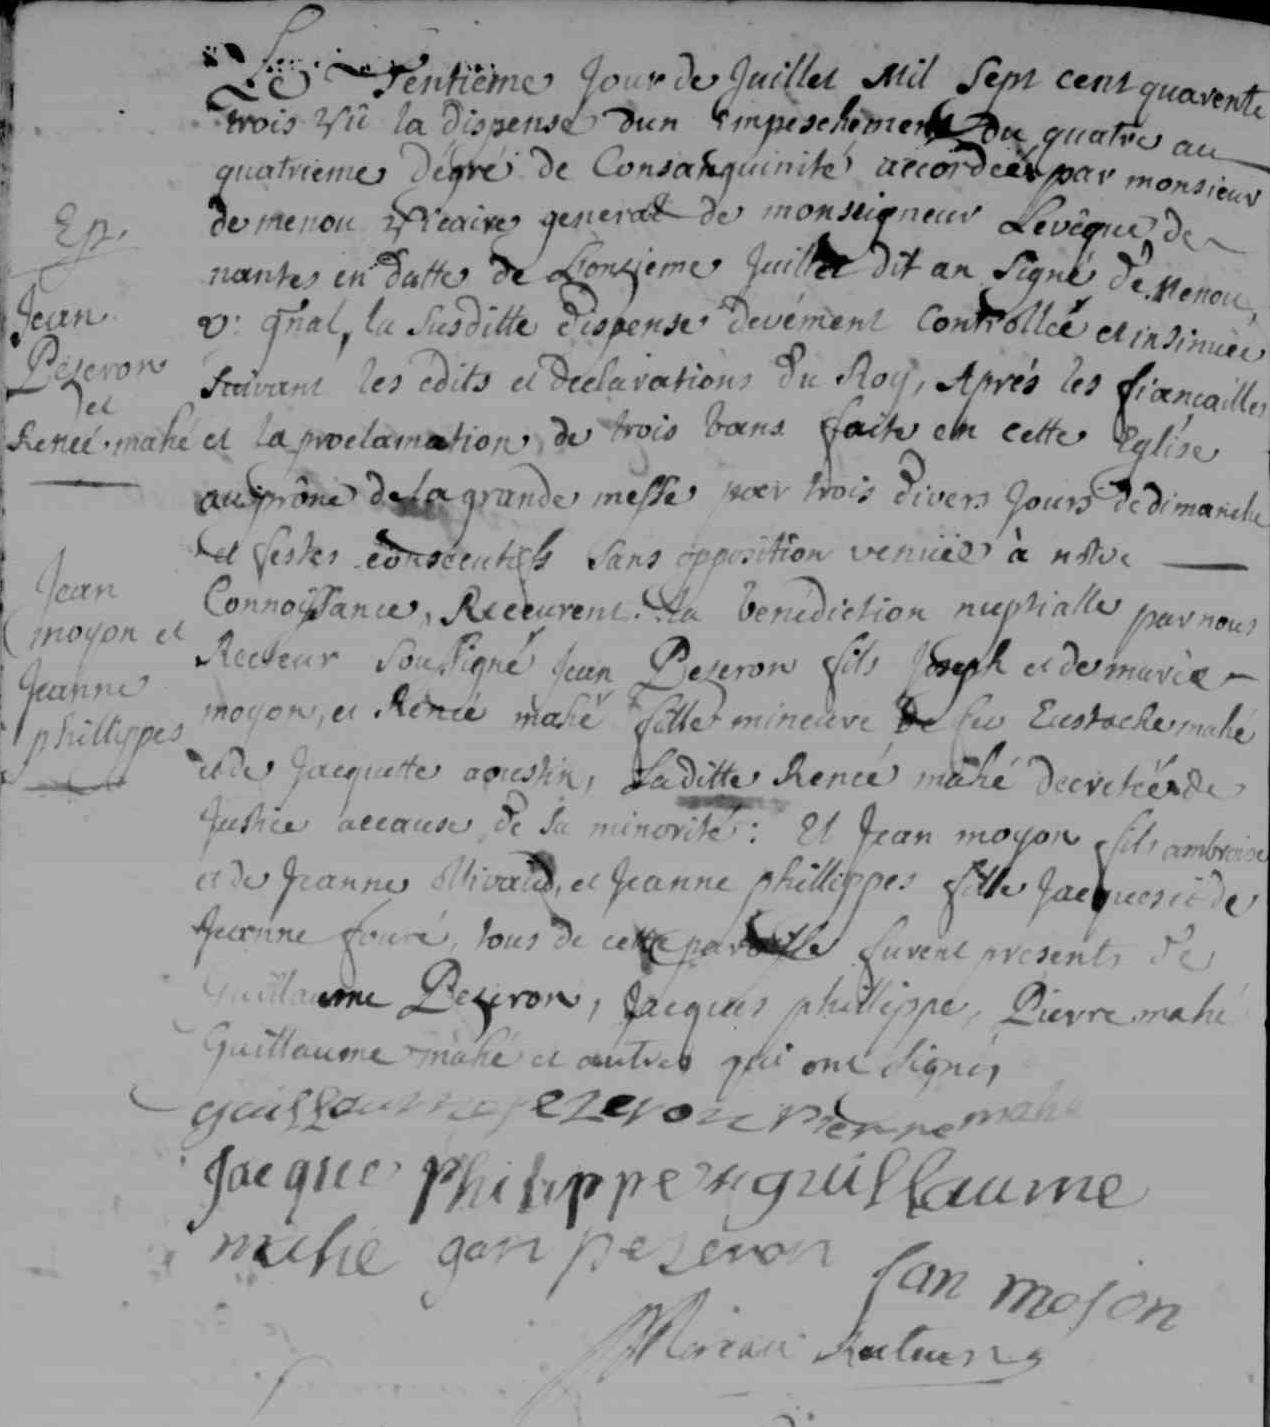 Ep.
Jean
Peseron
et
Renée mahé
Jean
moyon et
Jeanne
phillippes
Le Trentieme Jour de Juillet Mil Sept cent quarente
trois vû la dispense dun Empeschement du quatre au
quatrieme dégré de Consanguinité accordeé par monsieur
de menou Vicaire general de monseigneur Levêque de
nantes en datte de Lonzieme Juillet dit an Signé De Menou,
v: gnal, la susditte dispense devément Controlleé et insinueé
Suivant les edits et declarations du Roy, Aprés les fiancailles
et la proclamation de trois bans faite en cette Eglise
au prône de la grande messe par trois divers Jours de dimanche
et festes consecutifs sans opposition venüe à nôtre
Connoissance, Receurent la benediction nuptialle par nous
Recteur Soussigné Jean Peseron fils Joseph et de marie
moyon, et Renée mahé fille mineure de feu Eustache mahé
et de Jacquette aoustin, Laditte Renée mahé decreteé de
Justice accause de sa minorité: Et Jean moyon fils ambroise
et de Jeanne Ollivaud, et Jeanne phillippes fille Jacques et de
Jeanne fouré, tous de cette paroisse furent presents de
Guillaume Peseron, Jacques phillippe, Pierre mahé
Guillaume mahé et autres qui ont signés
guillaume peseron Pierre mahé
Jacque Philippe guillaume
mahé gan peseron
Jan moion
Moreau Recteur